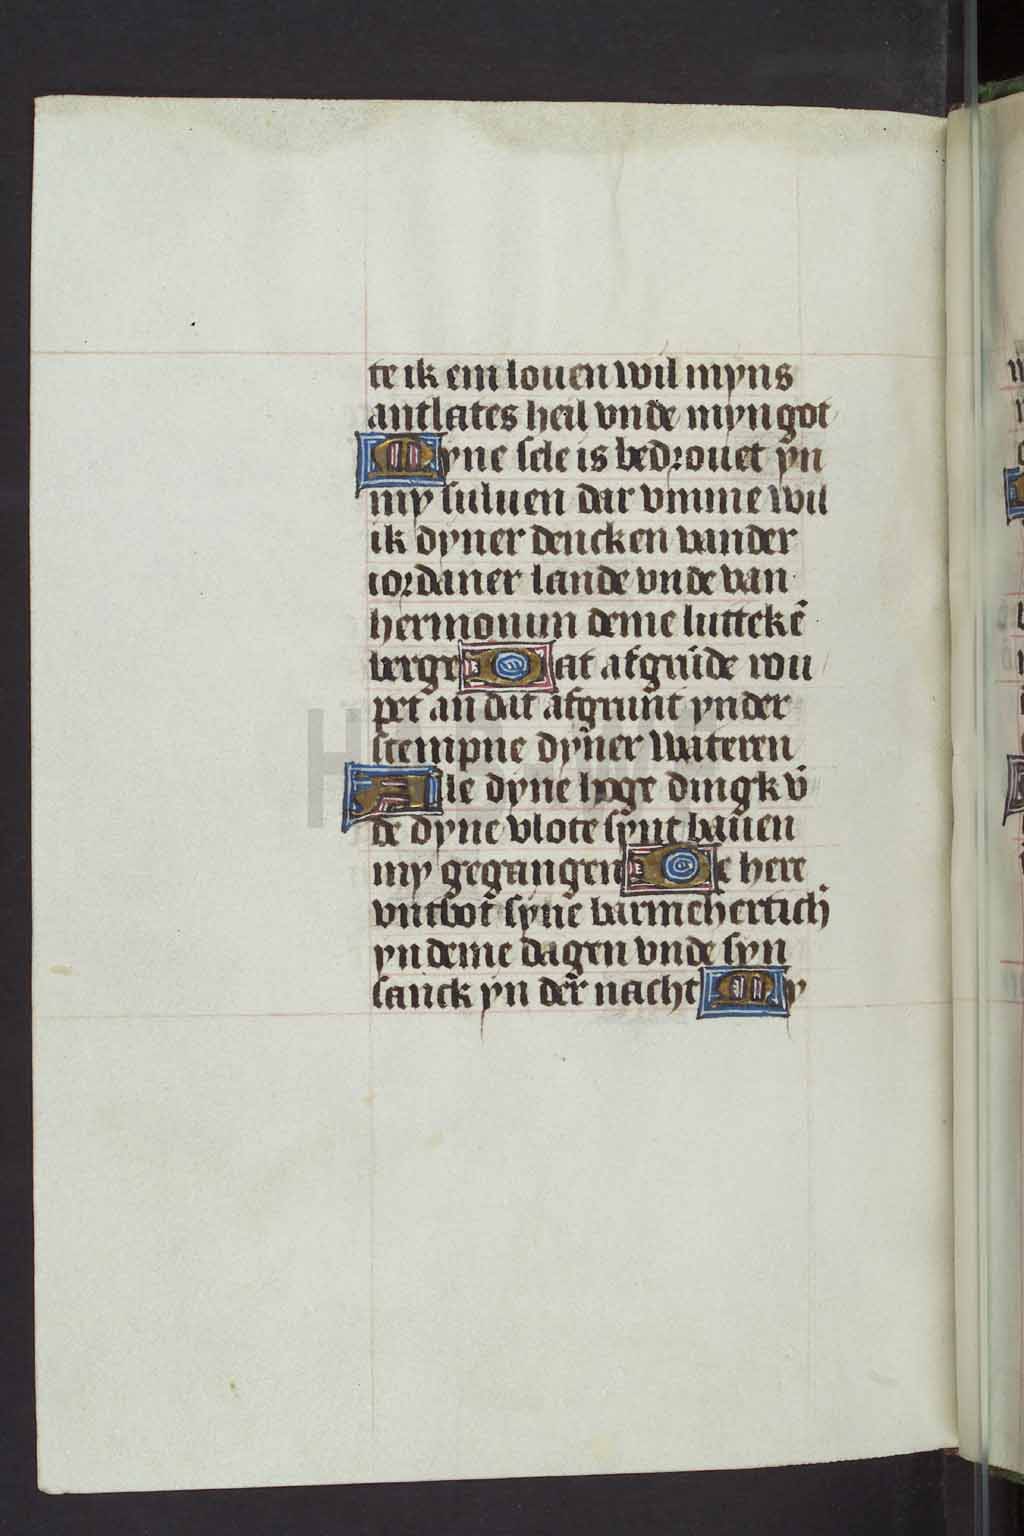 te ik em louen wil myns
antlates heil vnde myn got
Myne sele is bedrouet yn
my suluen dar vmme wil
ik dyner dencken van der
iordaner lande vnde van
hermonim deme luttekē
berge Dat afgrūde rou
pet an dat afgrunt yn der
stempne dyner wateren
Alle dyne hoge dingk vn̄
de dyne vlote synt bauen
my gegangen De here
vntbot syne barmehertich
yn deme dagen vnde syn
sanck yn der nacht My